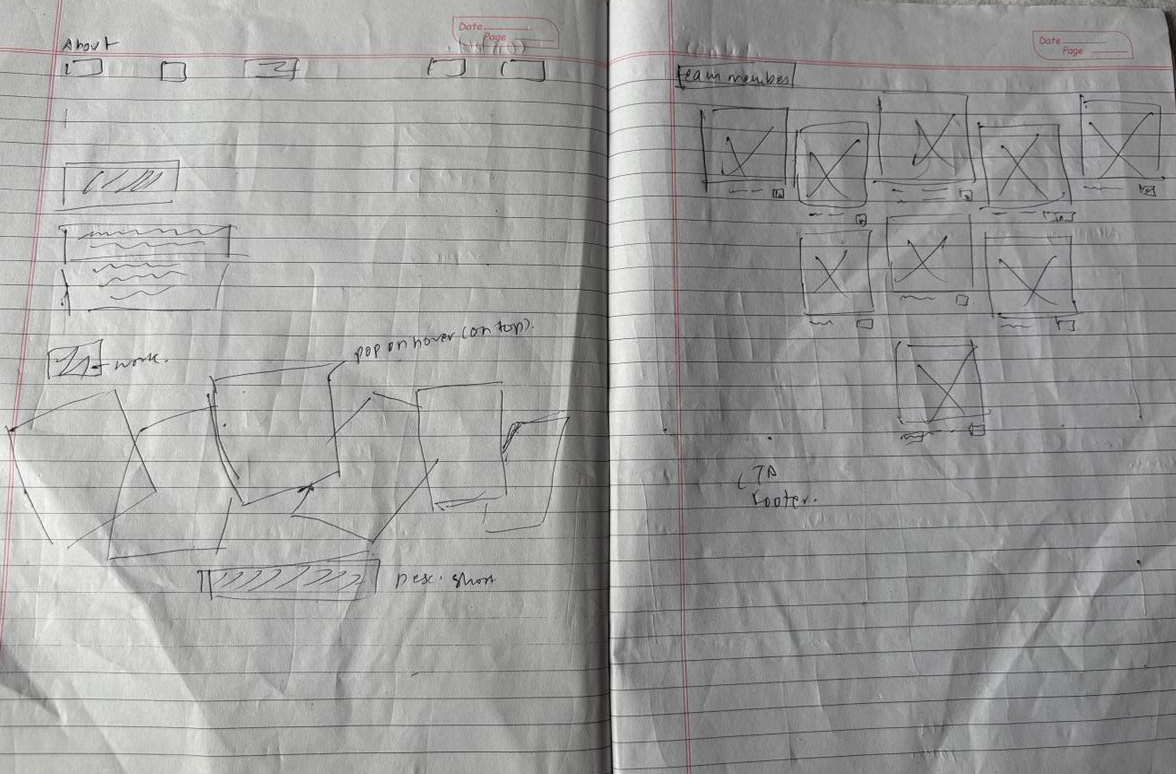 About
Date
Page
work.
pop on hover (on top).
Desc. short
Date
Page
team member
CTA
footer.